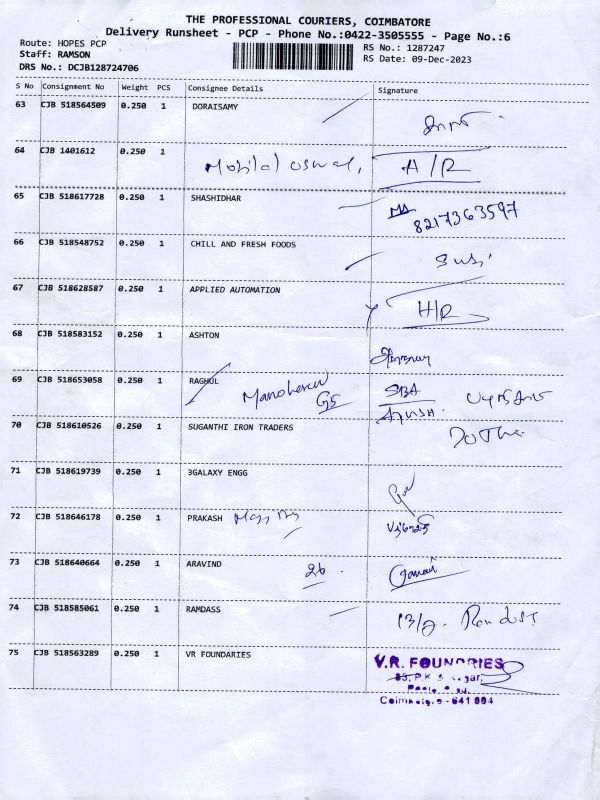 THE PROFESSIONAL COURIERS, COIMBATORE
Delivery Runsheet - PCP - Phone No.:0422-3505555 - Page No.:6
Route: HOPES PCP RS No.: 1287247
Staff: RAMSON RS Date: 09-Dec-2023
DRS No.: DCJB128724706
S No Consignment No Weight PCS Consignee Details Signature
63 CJB 518564509 0.250 1 DORAISAMY
64 CJB 1401612 0.250 1 Motilal oswal, H/R
65 CJB 518617728 0.250 1 SHASHIDHAR 8217363597
66 CJB 518548752 0.250 1 CHILL AND FRESH FOODS
67 CJB 518628587 0.250 1 APPLIED AUTOMATION H/R
68 CJB 518583152 0.250 1 ASHTON
69 CJB 518653058 0.250 1 RAGHUL
70 CJB 518610526 0.250 1 SUGANTHI IRON TRADERS
71 CJB 518619739 0.250 1 3GALAXY ENGG
72 CJB 518646178 0.250 1 PRAKASH
73 CJB 518640664 0.250 1 ARAVIND 26
74 CJB 518585061 0.250 1 RAMDASS
75 CJB 518563289 0.250 1 VR FOUNDARIES V.R. FOUNDRIES